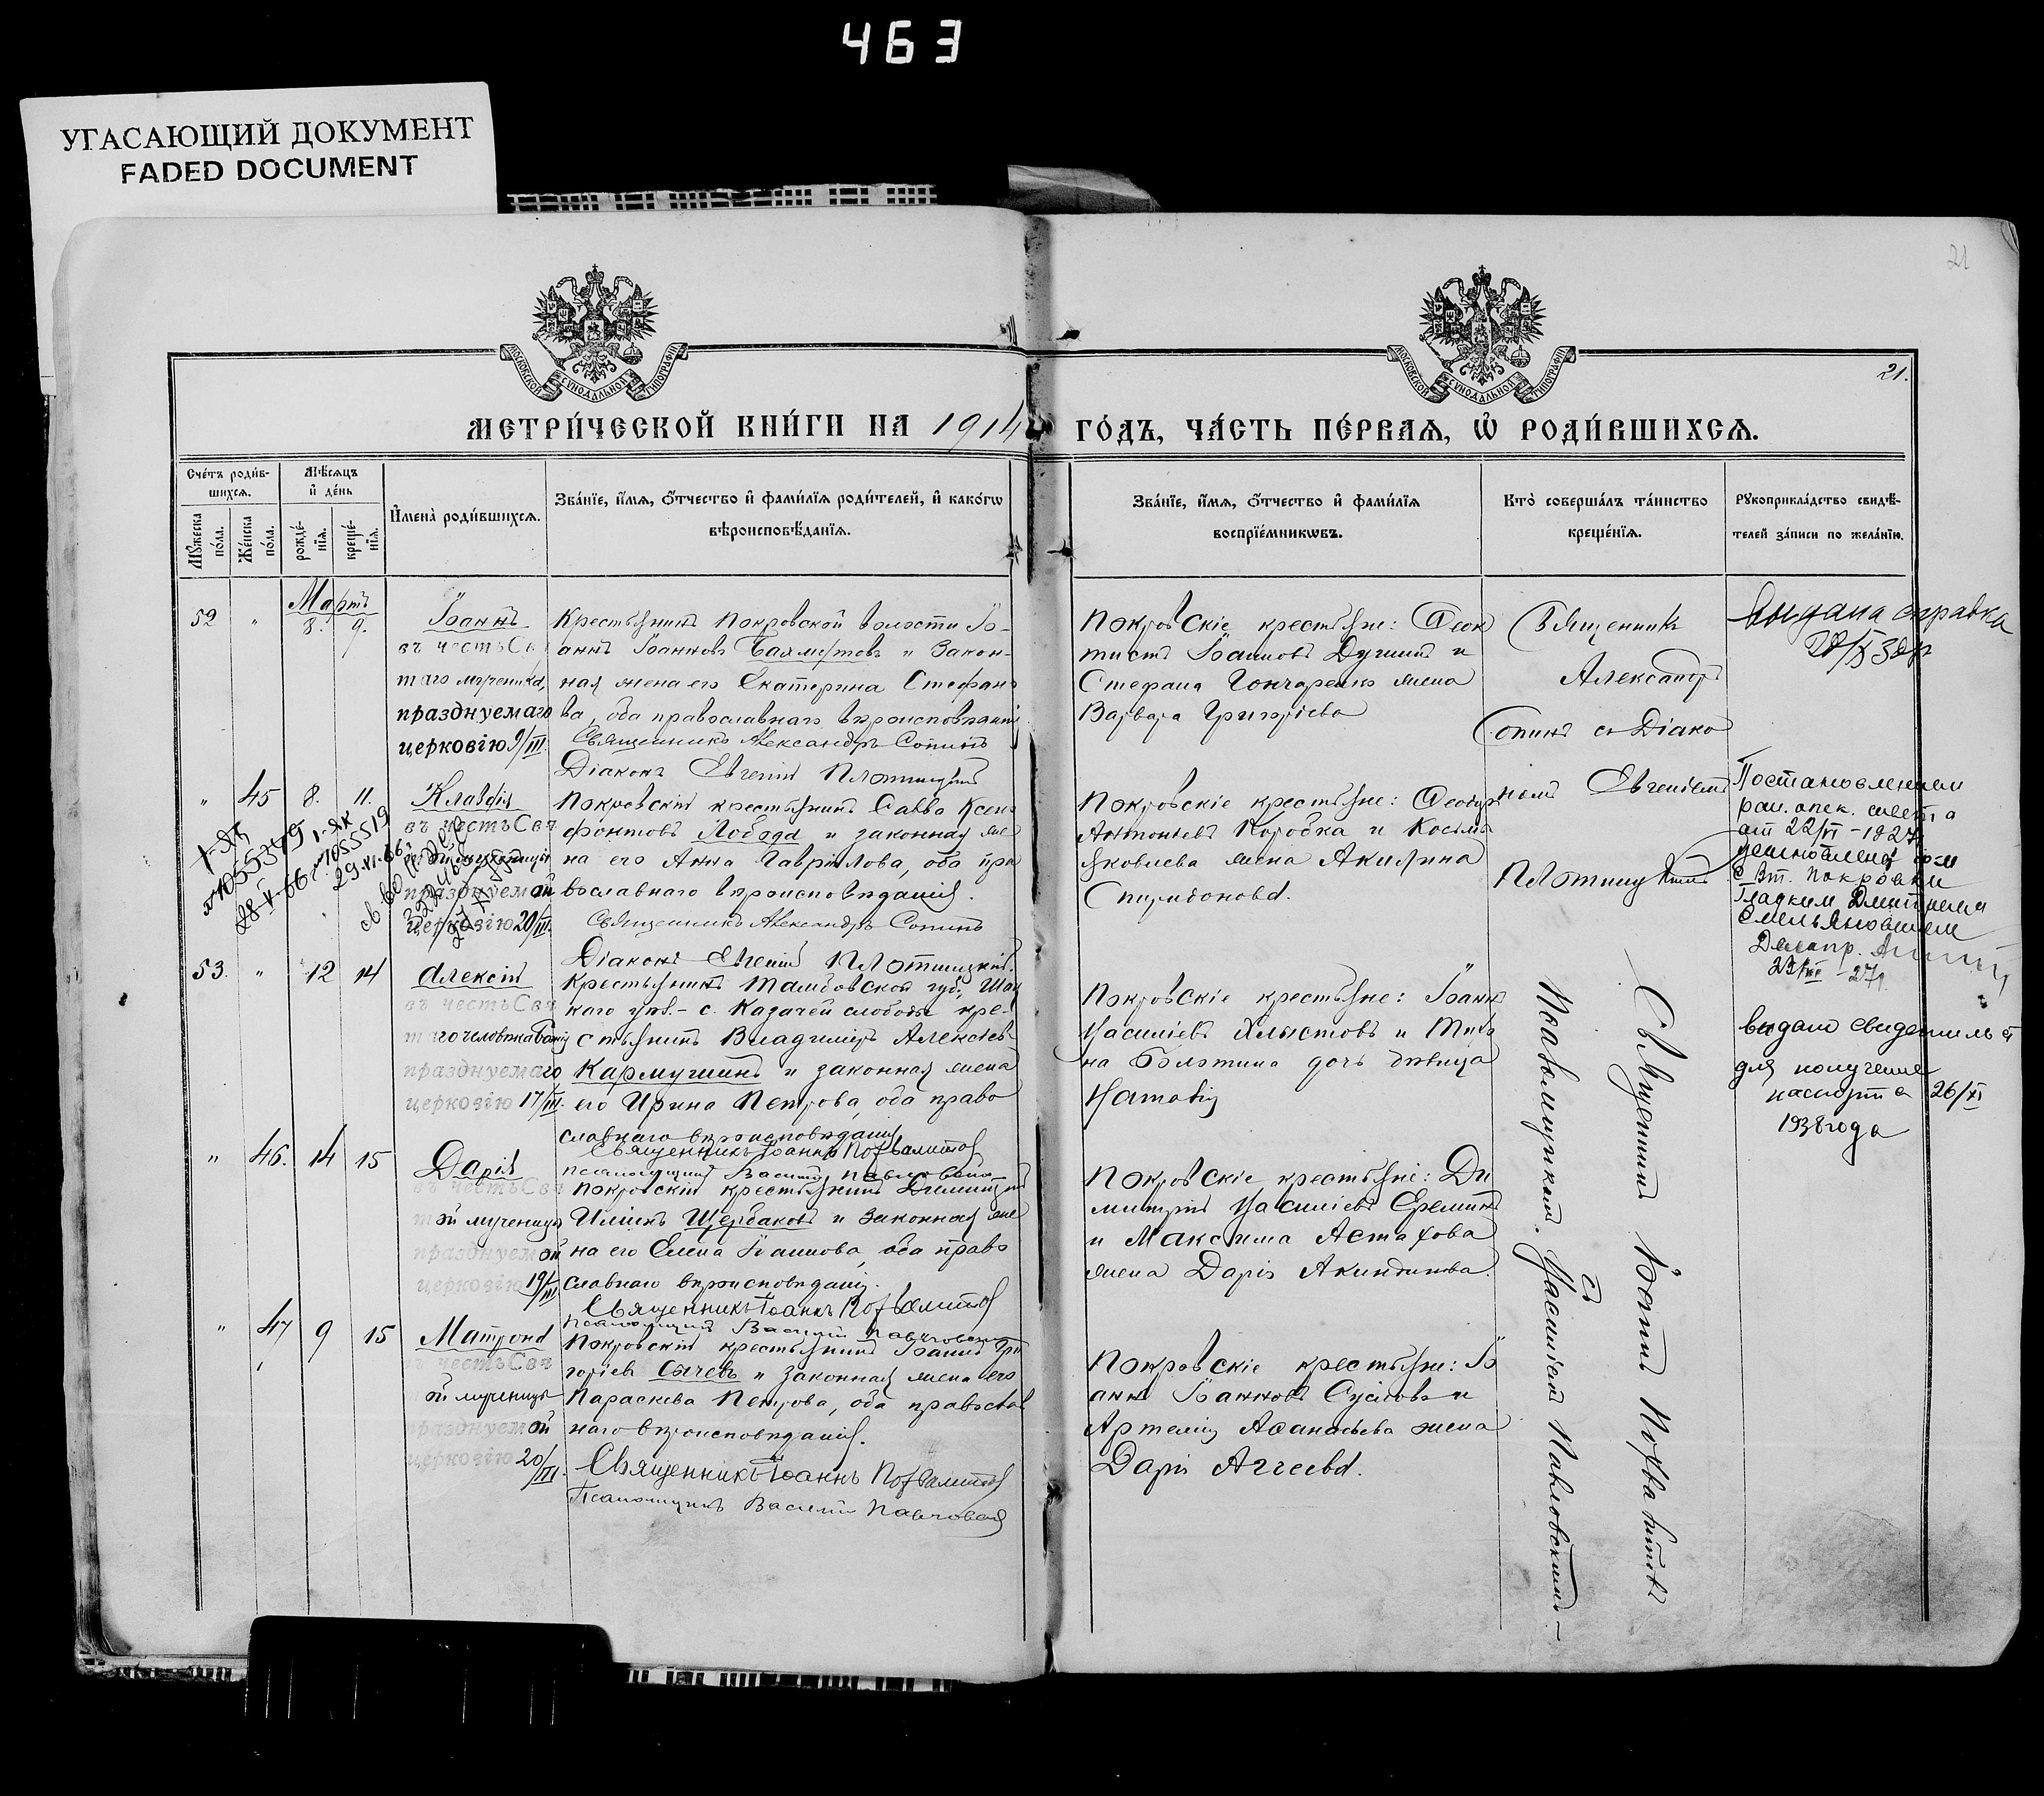 463
УГАСАЮЩИЙ ДОКУМЕНТ
FADED DOCUMENT
21
21.
МОСКОВСКОЙ СѴНОДАЛЬНОЙ ТИПОГРАФІИ
МОСКОВСКОЙ СѴНОДАЛЬНОЙ ТИПОГРАФІИ
МЕТРИ́ЧЕСКОЙ КНИ́ГИ НА 1914 ГО́ДЪ, ЧА́СТЬ ПЕ́РВАѦ, Ѡ҆ РОДИ́ВШИХСѦ.
Сче́тъ роди́в-
шихсѧ.
Мꙋ́жеска по́ла.
Же́нска по́ла.
Мѣ́сѧцъ
и҆ де́нь
рожде́-
нїѧ.
креще́-
нїѧ.
И҆мена̀ роди́вшихсѧ.
Зва́нїе, и҆́мѧ, ѻ҆́тчество и҆ фами́лїѧ роди́телей, и҆ како́гѡ
вѣроисповѣ́данїѧ.
Зва́нїе, и҆́мѧ, ѻ҆́тчество и҆ фами́лїѧ
воспрїе́мникѡвъ.
Кто̀ соверша́лъ та́инство
креще́нїѧ.
Рꙋкоприкла́дство свидѣ́-
телей за́писи по жела́нїю.
Мартъ
52 " 8. 9.
Іоаннъ
въ честь Свя
таго мученика,
празднуемаго
церковію 9/III.
Крестьянинъ Покровской волости Іо-
аннъ Іоанновъ Бахметовъ и закон-
ная жена его Екатерина Стефано
ва, оба православнаго вѣроисповѣданія
Священникъ Александръ Сопинъ
Діаконъ Евгеній Плотницкій
Покровскіе крестьяне: Ѳеок
тистъ Іоанновъ Душинъ и
Стефана Гончаренко жена
Варвара Григоріева
Священникъ
Александръ
Сопинъ съ Діако
номъ Евгеніемъ
Плотницкимъ
Выдана справка
" 45 8. 11.
Клавдія
въ честь Свя
празднуемой
церковію 20/III.
№ 055349
№ 1055519
Покровскій крестьянинъ Савва Ксено
фонтовъ Лобода и законная же
на его Анна Гаврилова, оба пра
вославнаго вѣроисповѣданія.
Священникъ Александръ Сопинъ
Діаконъ Евгеній Плотницкій.
Покровскіе крестьяне: Ѳеодоръ
Антоньевъ Коробка и Косьмы
Яковлева жена Акилина
Спиридонова.
Постановлением
рай. опек. совета
от 22/VI - 1927
усыновлена гр-м
с. Вт. Покровки
Гладким Дмитрием
Емельяновичем
53. " 12 14
Алексій
въ честь Свя
таго человѣка Божія
празднуемаго
церковію 17/III.
Крестьянинъ Тамбовской губ., Шац
каго уѣз. - с. Казачей слободы кре-
стьянинъ Владиміръ Алексѣевъ
Кармушинъ и законная жена
его Ирина Петрова, оба право
славнаго вѣроисповѣданія
Псаломщикъ Василій Павловскій
Покровскіе крестьяне: Іоаннъ
Васильевъ Хлыстовъ и Тихо
на Болотина дочь дѣвица
Наталія
выдано свидетельст
для получения
паспорта 26/XI
1938 года
" 46. 14 15
Дарія
въ честь Свя
той мученицы
празднуемой
церковію 19/III
Покровскій крестьянинъ Димитрій
Ильинъ Щербаковъ и законная же
на его Елена Іоаннова, оба право
славнаго вѣроисповѣданія.
Псаломщикъ Василій Павловскій
Покровскіе крестьяне: Ди
митрій Васильевъ Ереминъ
и Максима Астахова
жена Дарія Акиндинова.
" 47 9 15
Матрона
въ честь Свя
той мученицы
празднуемой
церковію 20/III.
Покровскій крестьянинъ Іоаннъ Гри
горіевъ Сычевъ и законная жена его
Параскева Петрова, оба православ
наго вѣроисповѣданія.
Псаломщикъ Василій Павловскій
Покровскіе крестьяне: Іо
аннъ Іоанновъ Сусловъ и
Артемія Аѳанасьева жена
Дарія Аггеева.
Священникъ Іоаннъ
съ
Псаломщикомъ Василіемъ Павловскимъ.